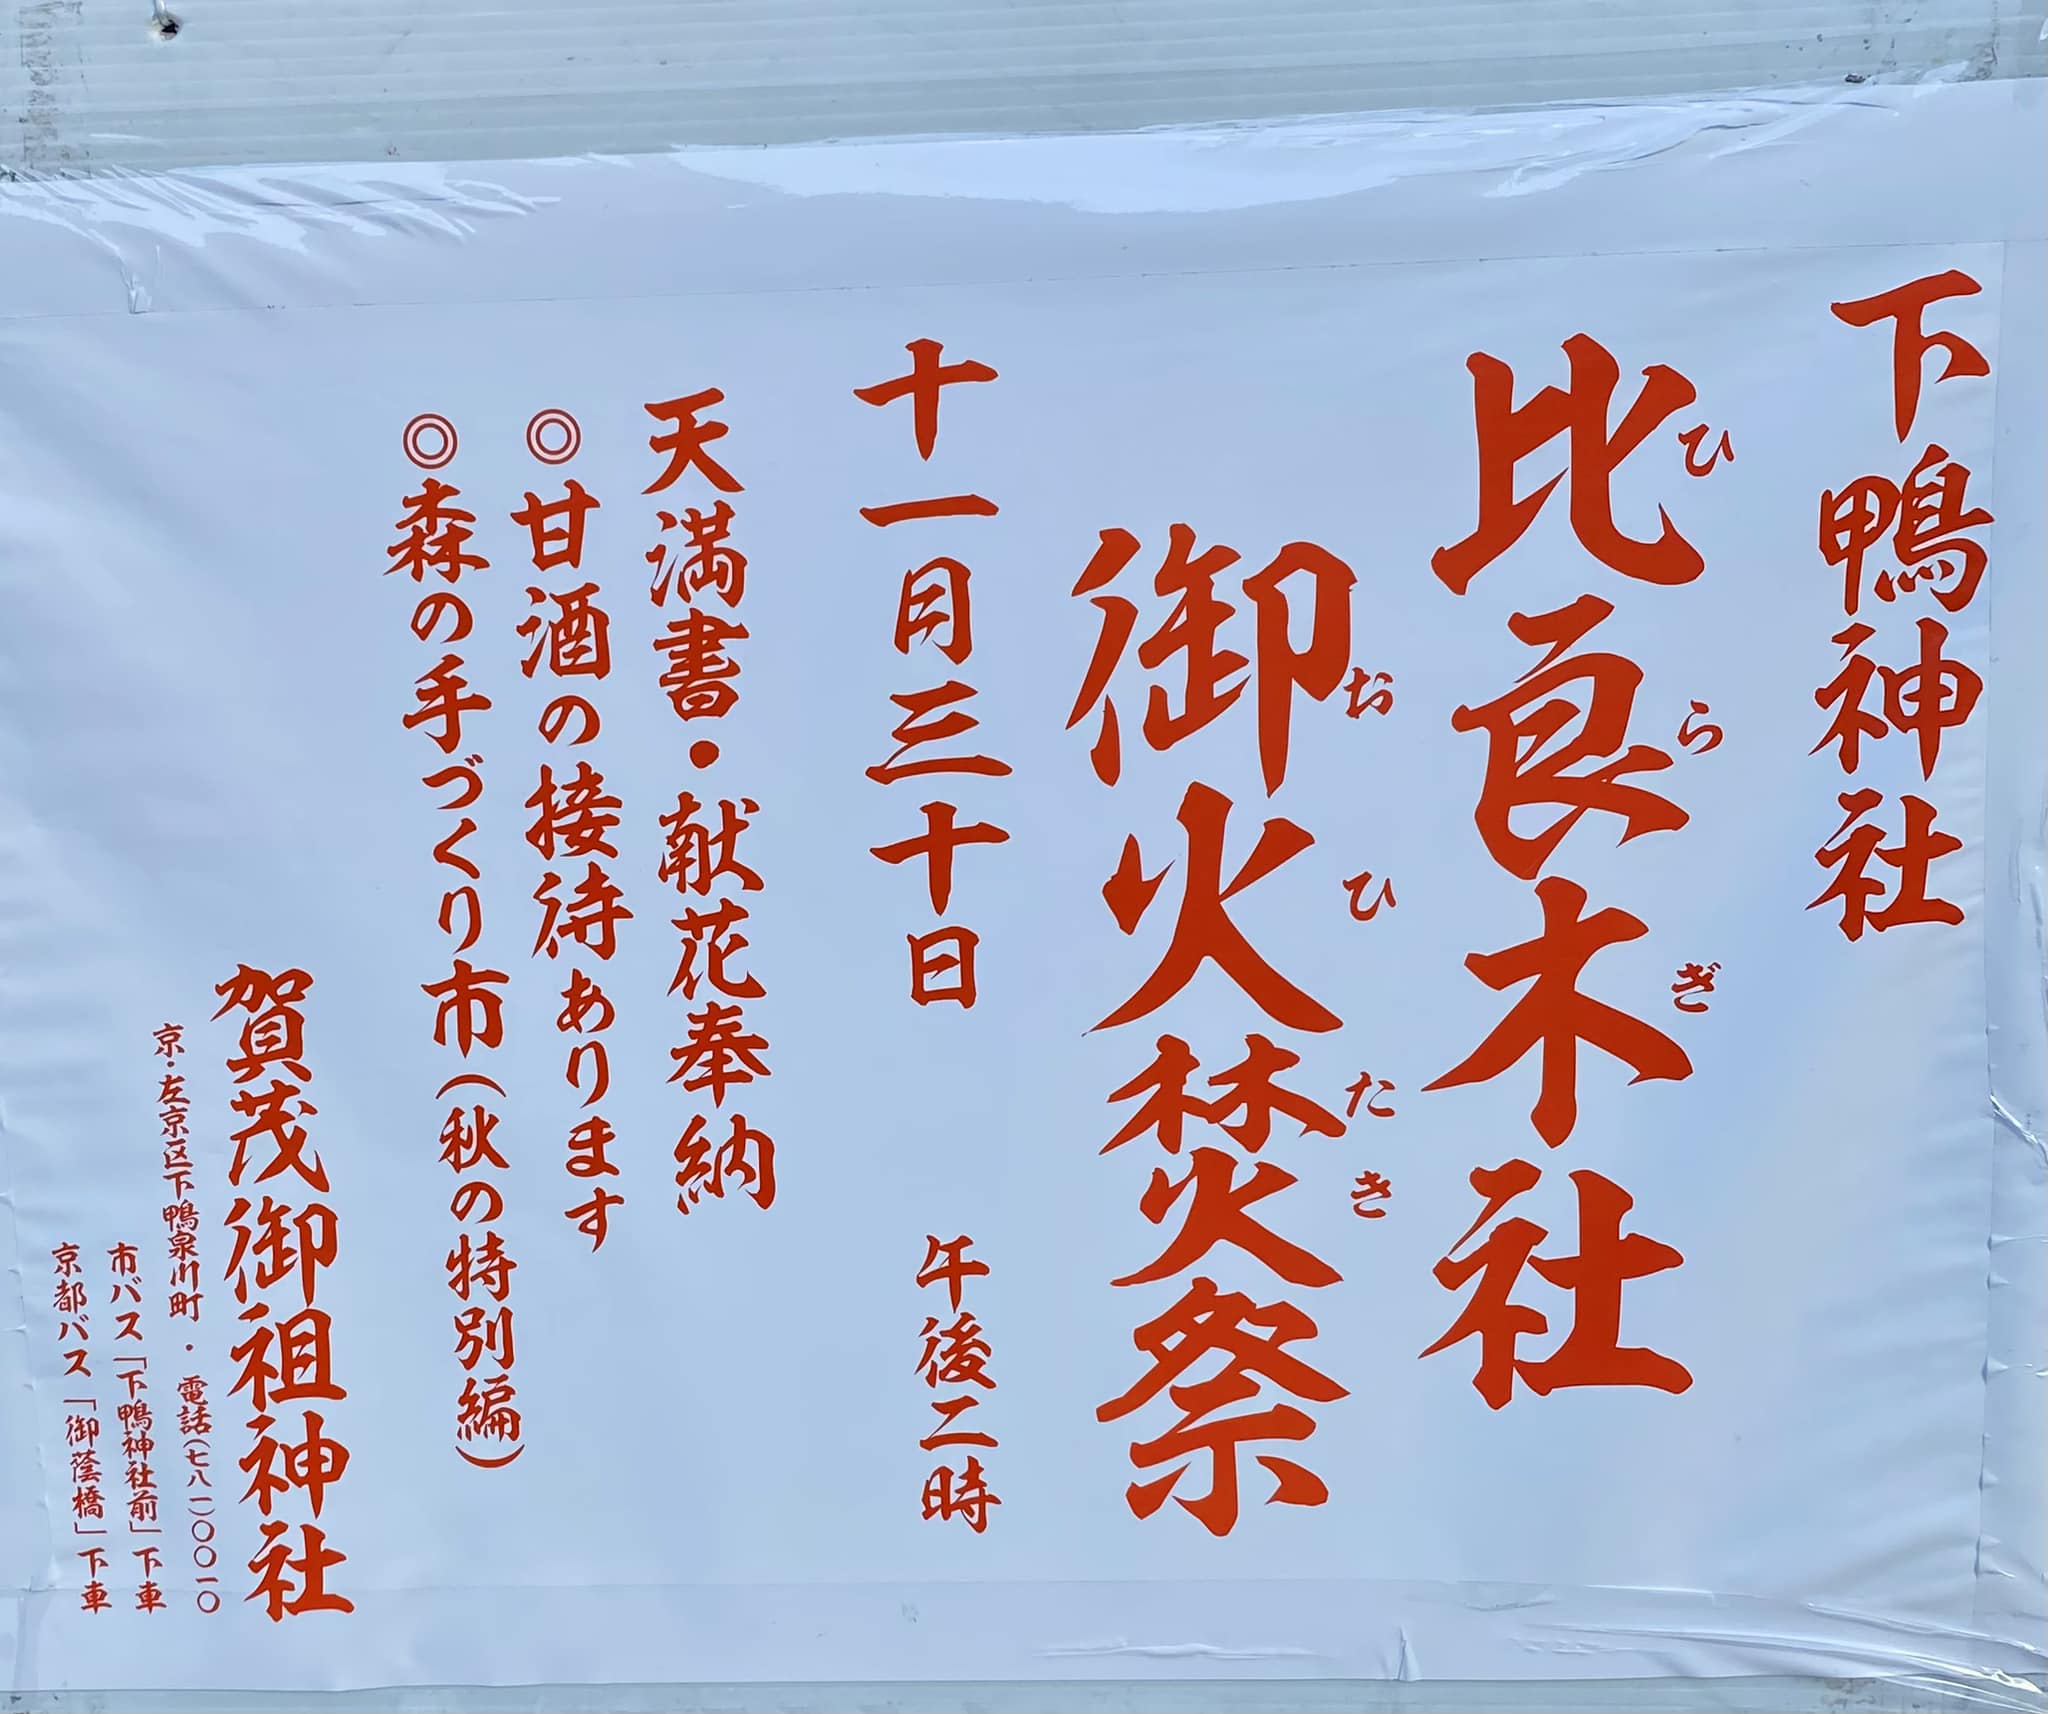 下鴨神社
比良木社
ひらぎ
御火焚祭
おひたき
十一月三十日 午後二時
天満書・献花奉納
◎甘酒の接待あります
◎森の手づくり市(秋の特別編)
賀茂御祖神社
京・左京区下鴨泉川町・電話(七八一)〇〇一〇
市バス「下鴨神社前」下車
京都バス「御蔭橋」下車